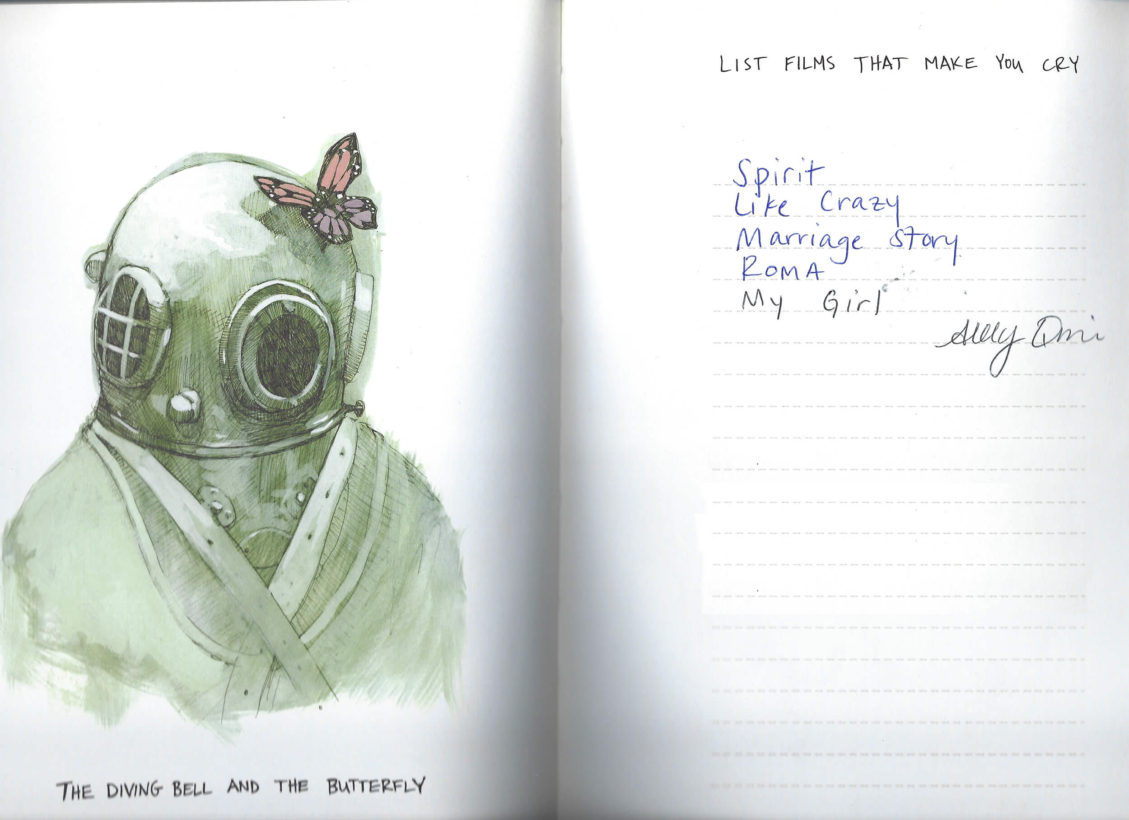 THE DIVING BELL AND THE BUTTERFLY
LIST FILMS THAT MAKE YOU CRY
Spirit
Like Crazy
Marriage Story
ROMA
My Girl